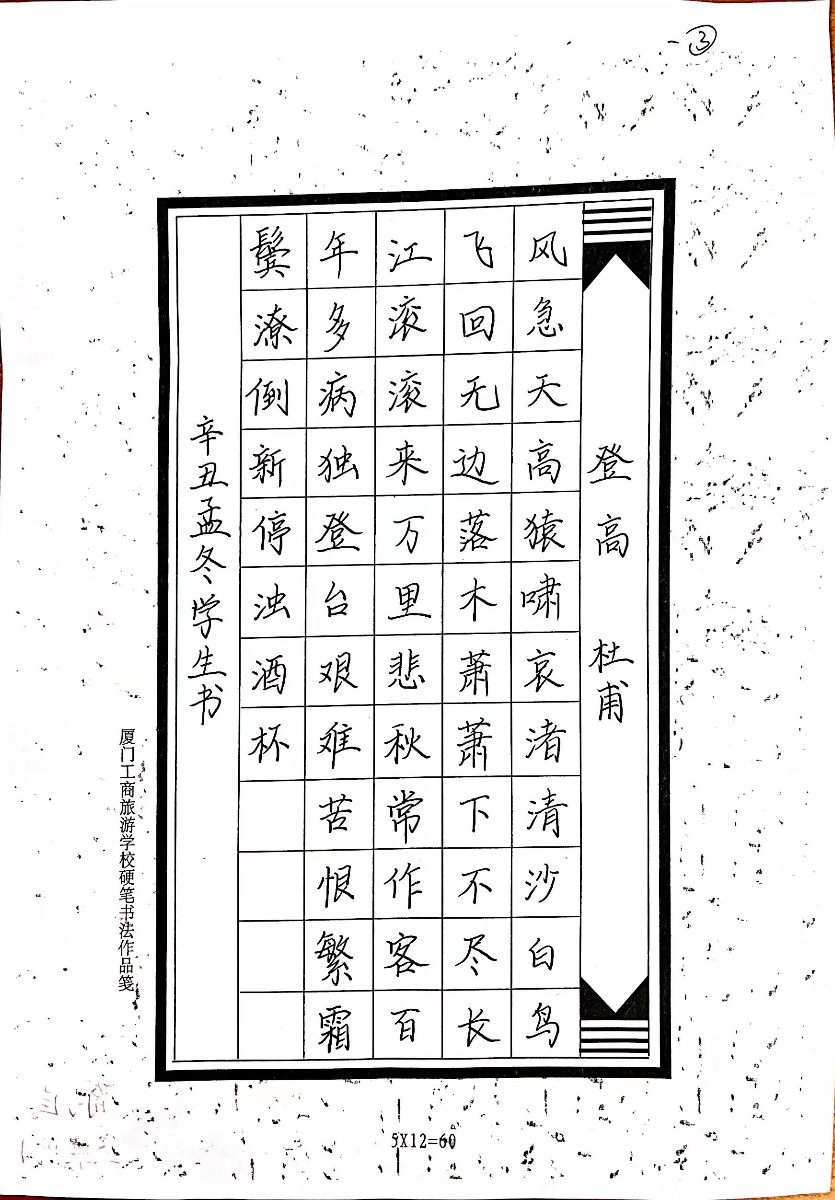 ③
登高 杜甫
风急天高猿啸哀渚清沙白鸟
飞回无边落木萧萧下不尽长
江滚滚来万里悲秋常作客百
年多病独登台艰难苦恨繁霜
鬓潦倒新停浊酒杯
辛丑孟冬学生书
厦门工商旅游学校硬笔书法作品笺
5X12=60